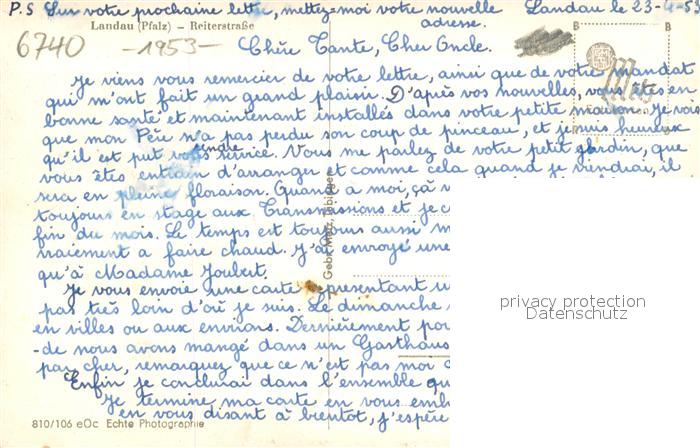 P.S Sur votre prochaine lettre, mettez-moi votre nouvelle adresse.
Landau le 23-4-53
Landau (Pfalz) – Reiterstraße
6740
-1953-
Chère Tante, Cher Oncle.
Je viens vous remercier de votre lettre, ainsi que de votre mandat
qui m'ont fait un grand plaisir. D'après vos nouvelles, vous êtes en
bonne santé et maintenant installés dans votre petite maison. Je vois
que mon Père n'a pas perdu son coup de pinceau, et je suis heureux
qu'il est put vous rendre service. Vous me parlez de votre petit jardin, que
vous êtes entrain d'arranger et comme cela quand je viendrai, il
sera en pleine floraison. Quand a moi, çà v
toujours en stage aux Transmissions et je c
fin du mois. Le temps est toujours aussi m
vraiement a faire chaud. J'ai envoyé une
qu'à Madame Joubert.
Je vous envoie une carte representant u
pas très loin d'où je suis. Le dimanche
en villes ou aux environs. Dernièrement pou
-de nous avons mangé dans un Gasthaus
pas cher, remarquez que ce n'est pas moi
Enfin je conclurai dans l'ensemble qu
Je termine ma carte en vous emb
en vous disant à bientôt, j'espère
Gebr. Metz, Tübingen
B
B
Metz
privacy protection
Datenschutz
810/106 eOc Echte Photographie